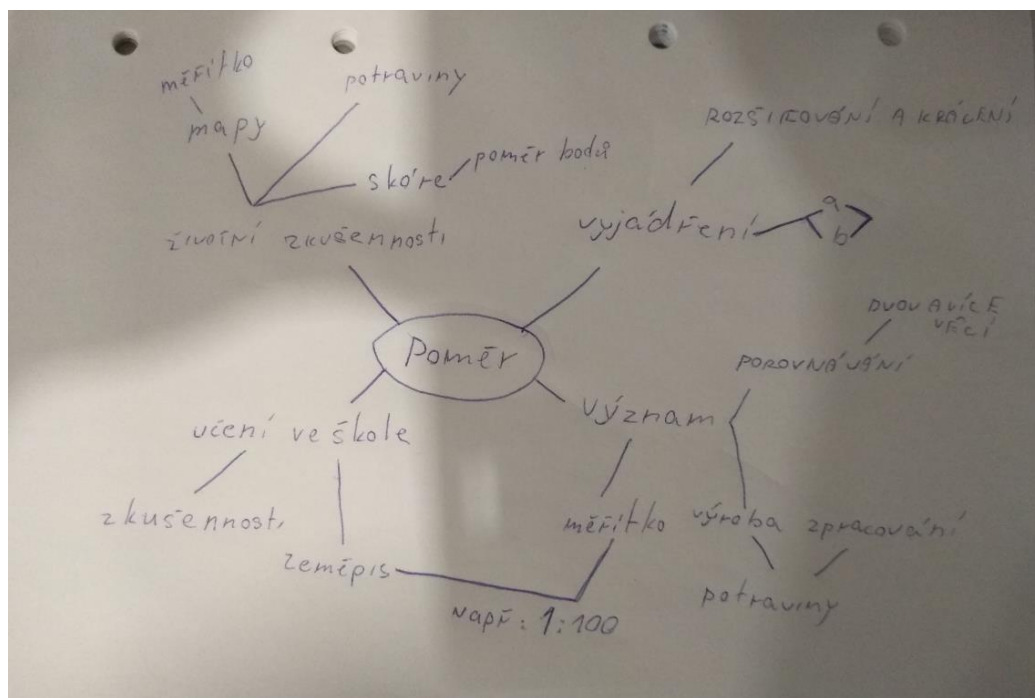 měřítko
mapy
potraviny
skóre
poměr bodů
životní zkušennosti
ROZŠIŘOVÁNÍ A KRÁCENÍ
vyjádření
a
b
Poměr
DVOU A VÍCE
VĚCÍ
POROVNÁVÁNÍ
význam
učení ve škole
zkušennosti
zeměpis
měřítko
např: 1:100
výroba
zpracování
potraviny